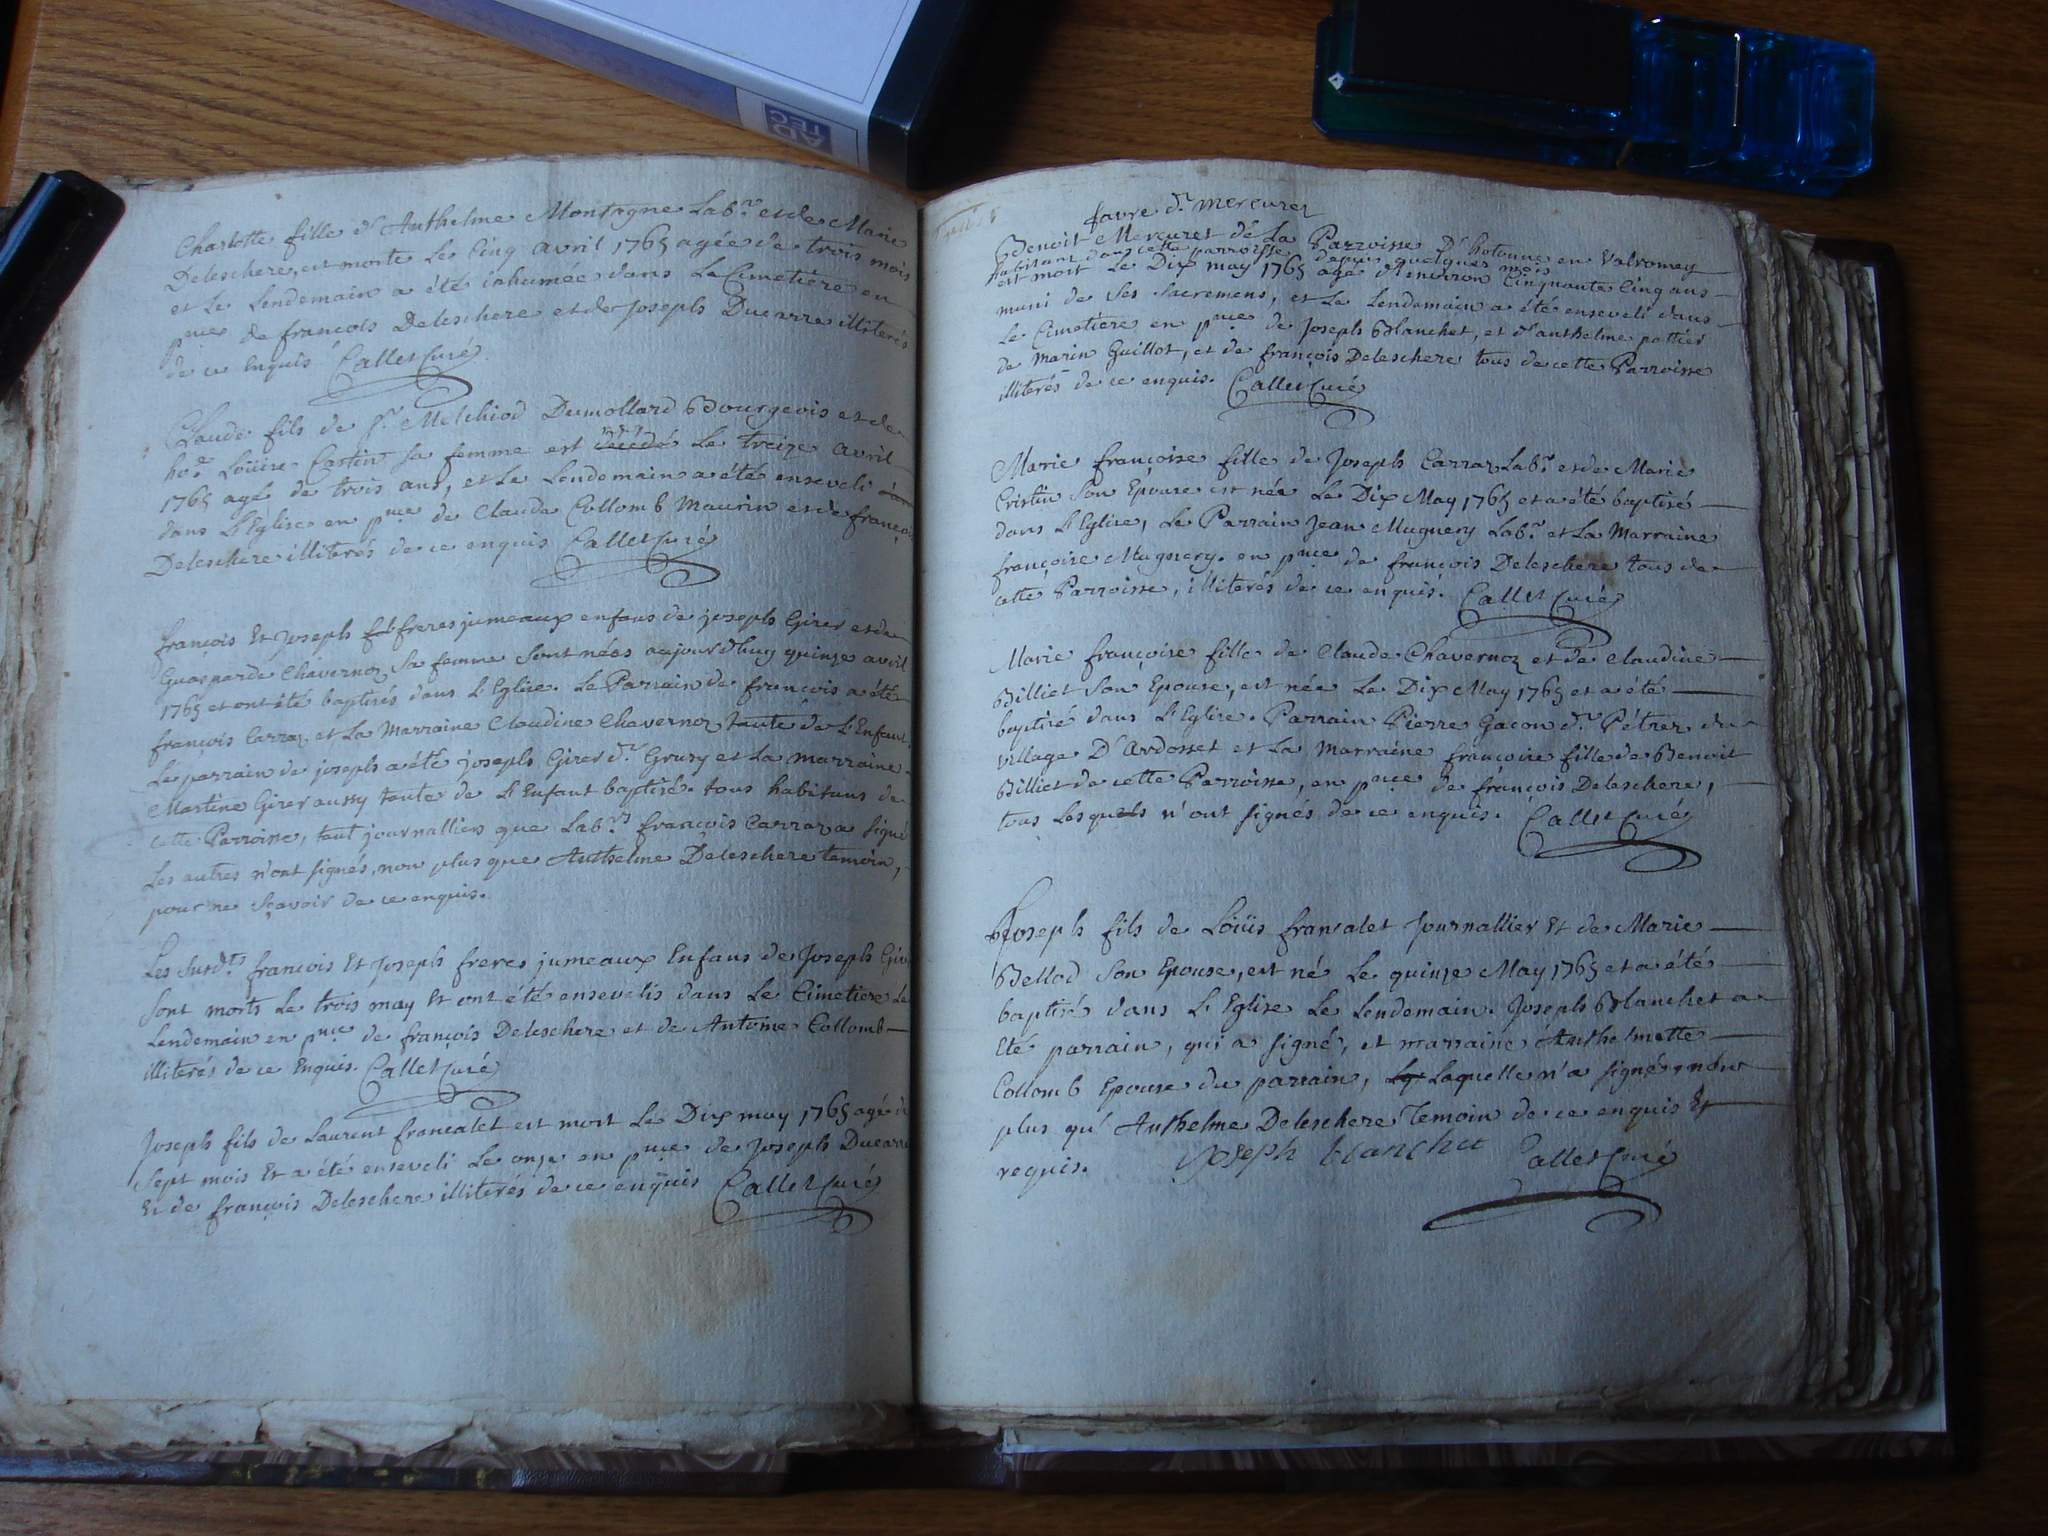 Charlotte fille d'Anthelme Montagne Lab.r et de Marie
Deleschere, est morte Le Cinq avril 1765 agée de trois mois
et Le Lendemain a été inhumée dans Le Cimetiere en
pnce de francois Deleschere et de Joseph Ducarre illiterés
de ce Enquis Callet Curé
Claude fils de Sr. Melchiod Dumollard Bourgeois et de
ho.e Loüise Castin sa femme est decedé Le treize avril
1765 agé de trois ans, et Le Lendemain a été enseveli
dans L'Eglise en pnce de Claude Collomb Maurin et de françois
Deleschere illiterés de ce enquis Callet Curé
françois Et Joseph freres jumeaux enfans de joseph Girer et de
Guasparde Chavernoz sa femme sont nées aujourdhuy quinze avril
1765 et ont été baptisés dans L'Eglise. Le Parrain de francois a été
francois Carraz et La Marraine Claudine Chavernoz tante de L'Enfant,
Le parrain de joseph a été joseph Girer d.r Grusy et La marraine
Martine Girer aussy tante de L'Enfant baptisé. tous habitans de
cette Parroisse, tant journalliers que Lab.rs francois Carraz a signé
Les autres n'ont signés, non plus que Anthelme Deleschere temoin,
pour ne sçavoir de ce enquis.
Les Susd.ts francois Et Joseph freres jumeaux Enfans de Joseph Gire
sont morts Le trois may Et ont été ensevelis dans Le Cimetiere Le
Lendemain en pnce de francois Deleschere et de Antoine Collomb
illiterés de ce Enquis. Callet Curé
Joseph fils de Laurent francalet est mort Le Dix may 1765 agé de
Sept mois Et a été enseveli Le onze en pnce de Joseph Ducarre
Et de françois Deleschere illiterés de ce enquis Callet Curé
favre d.r mercuret
Benoit Mercuret de La Parroisse D'hotonne en Valromey
habitant dans cette parroisse depuis quelques mois
est mort Le Dix may 1765 agé d'Environ Cinquante Cinq ans
muni de ses sacremens, et Le Lendemain a été enseveli dans
Le Cimetiere en pnce de Joseph Blanchet, et d'anthelme pottier
de Marin Guillot, et de françois Deleschere tous de cette Parroisse
illiterés de ce enquis. Callet Curé
Marie françoise fille de Joseph Carraz Lab.r et de Marie
Cristin son Epouse est née Le Dix May 1765 et a été baptisé
dans L'Eglise, Le Parrain Jean Mugnery Lab.r et La Marraine
françoise Mugnery. en pnce de françois Deleschere tous de
cette Parroisse, illiterés de ce enquis. Callet Curé
Marie françoise fille de Claude Chavernoz et de Claudine
Billiet son Epouse, est née Le Dix May 1765 et a été
baptisé dans L'Eglise. Parrain Pierre Gacon d.r Pétrer du
village D'Ardosset et La Marraine françoise fille de Benoit
Billiet de cette Parroisse, en pnce de françois Deleschere,
tous Lesquels n'ont signés de ce enquis. Callet Curé
Joseph fils de Loüis francalet Journallier Et de Marie
Bellod son Epouse, est né Le quinze May 1765 et a été
baptisé dans L'Eglise Le Lendemain. Joseph Blanchet a
Eté parrain, qui a signé, et marraine Anthelmette
Collomb Epouse du parrain, Laquelle n'a signé, non
plus qu'Anthelme Deleschere Temoin de ce enquis Et
requis. Joseph blanchet Callet Curé